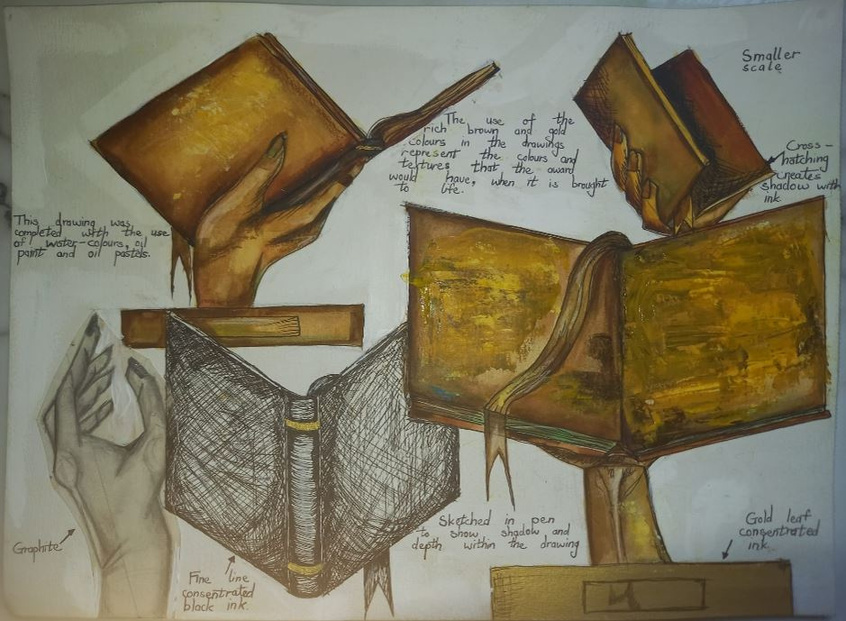 Smaller
scale
The use of the
rich brown and gold
colours in the drawings
represent the colours and
textures that the award
would have, when it is brought
to life.
Cross-
hatching
creates
shadow with
ink
This drawing was
completed with the use
of water-colours, oil
paint and oil pastels.
Graphite
Fine line
consentrated
black ink.
Sketched in pen
to show shadow and
depth within the drawing
Gold leaf
concentrated
ink